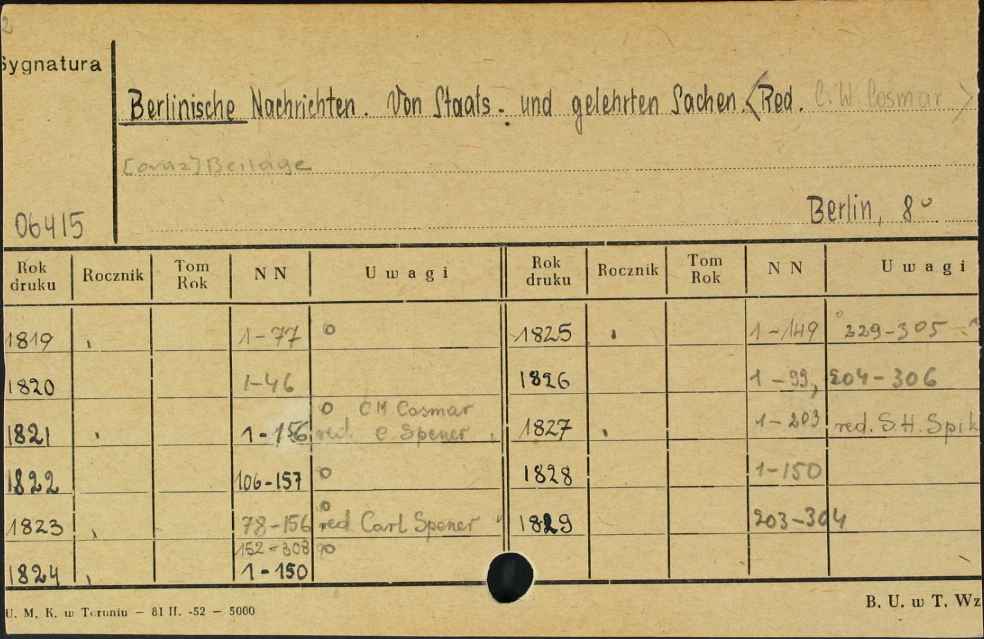 2
Sygnatura
Berlinische Nachrichten. Von Staats- und gelehrten Sachen. <Red. C.W. Cosmar>
[oraz] Beilage
06415
Berlin, 8°
Rok druku Rocznik Tom Rok NN Uwagi Rok druku Rocznik Tom Rok NN Uwagi
1819 1-77 o 1825 1-149 229-305
1820 1-46 1826 1-99, 204-306
o CM Cosmar
1821 1-156 red. C. Spener 1827 1-203 red. S.H. Spik
1822 106-157 o 1828 1-150
1823 78-156 o red Carl Spener 1829 203-304
152-308
1824 1-150
U. M. K. w Toruniu — 81 II. -52 — 5000
B. U. w T. Wz